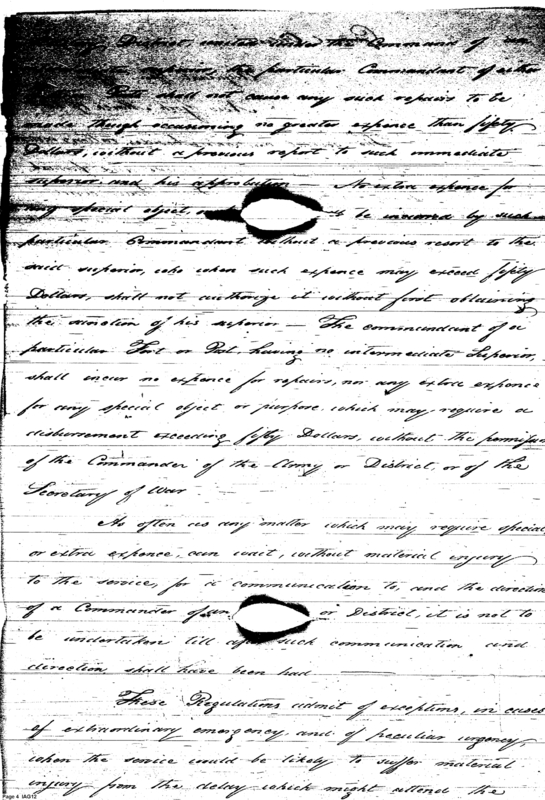 District, united under the Command of an
the particular Commandant of either
shall not cause any such repairs to be
made, though occasioning no greater expence than fifty
Dollars, without a previous report to such immediate
superior, and his approbation — No extra expence for
any special object, to be incurred by such
particular Commandant without a previous resort to the
said superior, who when such expence may exceed fifty
Dollars, shall not authorize it without first obtaining
the sanction of his superior — The commandant of a
particular Fort or Post, having no intermediate Superior,
shall incur no expence for repairs, nor any extra expence
for any special object or purpose, which may require a
disbursement exceeding fifty Dollars, without the
of the Commander of the Army or District, or of the
Secretary of War.
As often as any matter which may require special
or extra expence, can wait, without material injury
to the service, for a communication to, and the direction
of a Commander of an or District, it is not to
be undertaken till after such communication and
direction shall have been had
These Regulations admit of exceptions, in cases
of extraordinary emergency, and of peculiar urgency,
when the service would be likely to suffer material
injury from the delay which might attend the
Page 4 IAG12